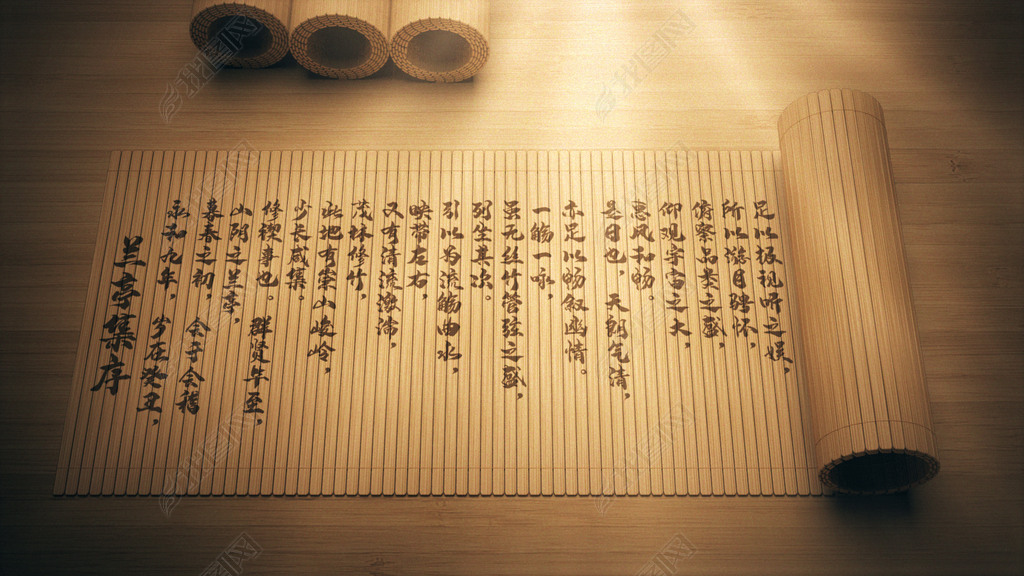 兰亭集序
永和九年，岁在癸丑，
暮春之初，会于会稽
山阴之兰亭，
修禊事也。群贤毕至，
少长咸集。
此地有崇山峻岭，
茂林修竹，
又有清流激湍，
映带左右，
引以为流觞曲水，
列坐其次。
虽无丝竹管弦之盛，
一觞一咏，
亦足以畅叙幽情。
是日也，天朗气清，
惠风和畅。
仰观宇宙之大，
俯察品类之盛，
所以游目骋怀，
足以极视听之娱，